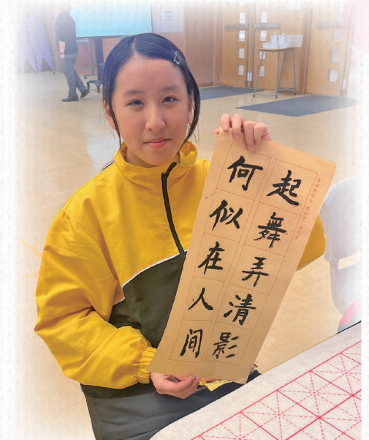 起舞弄清影
何似在人間